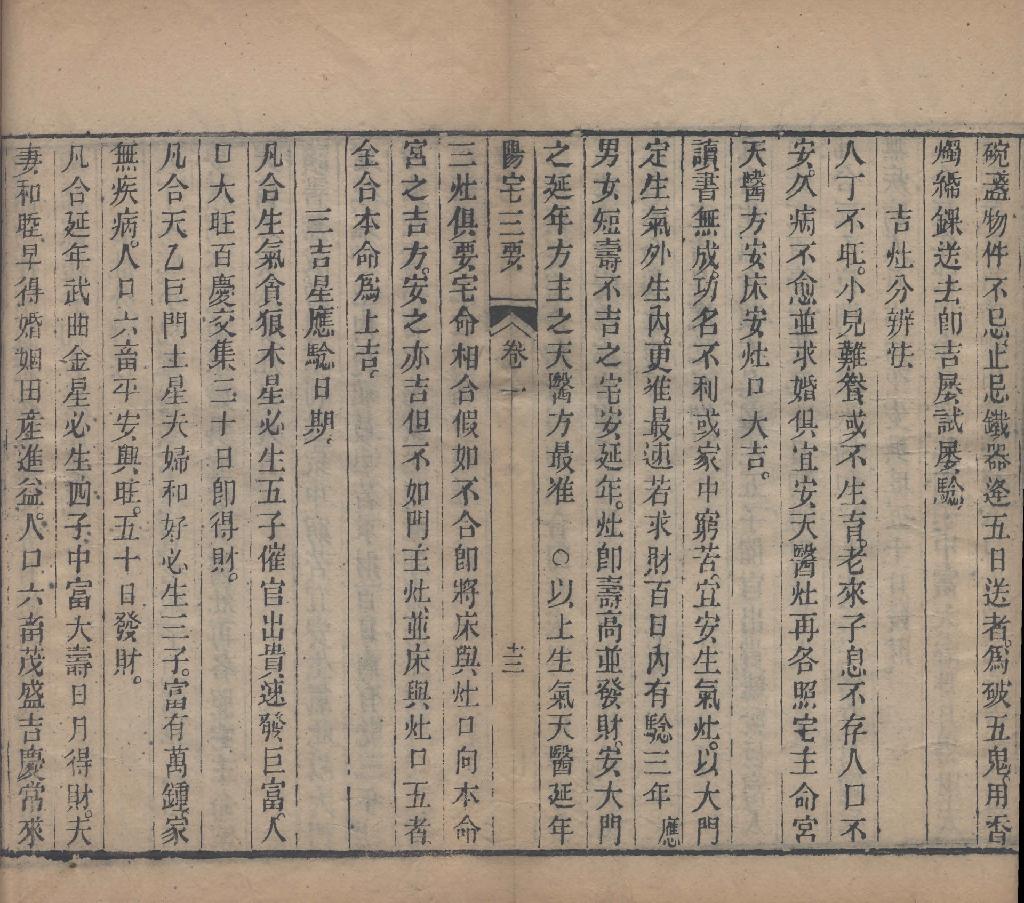 碗盞物件不忌止忌鐵器逢五日送者爲破五鬼用香
燭錦錁送去卽吉屡試屡騐
吉灶分辨法
人丁不旺。小見難養或不生育。老來子息不存人口不
安。久病不愈並求婚俱宜安天醫灶再各照宅主命宮
天醫方安床安灶口大吉。
讀書無成。功名不利或家中窮苦。宜安生氣灶。以大門
定生氣外生內。更准最速若求財百日內有騐三年應
男女短壽不吉之宅安延年。灶卽壽高並發財。安大門
之延年方主之天醫方最准 ○以上生氣天醫延年
陽宅三要 卷一 十三
三灶俱要宅命相合假如不合卽將床與灶口向本命
宮之吉方。安之亦吉但不如門主灶並床與灶口五者
全合本命爲上吉。
三吉星應騐日期。
凡合生氣貪狼木星必生五子催官出貴速發巨富。人
口大旺百慶交集三十日卽得財。
凡合天乙巨門土星夫婦和好必生三子。富有萬鍾。家
無疾病。人口六畜平安興旺。五十日發財。
凡合延年武曲金星必生四子。中富大壽日月得財。夫
妻和睦早得婚姻田產進益。人口六畜茂盛吉慶常來